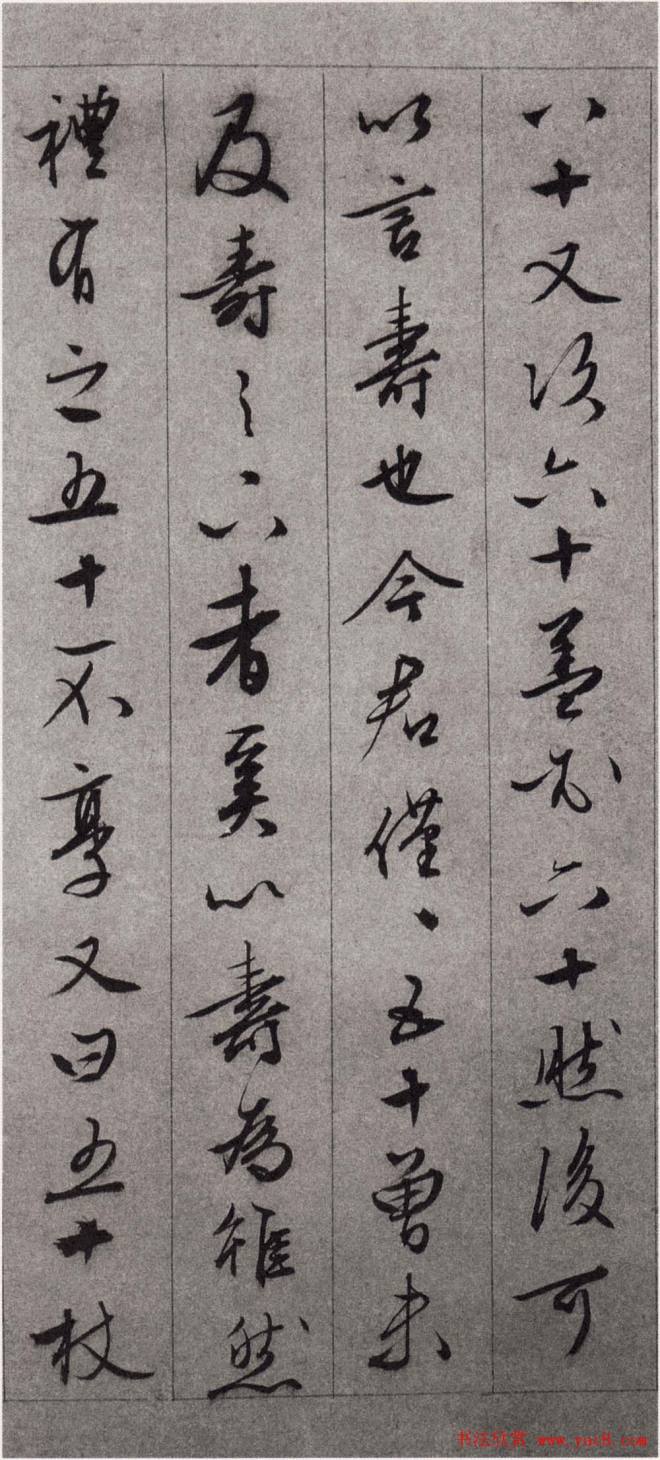 八十又次六十蓋必六十然後可
以言壽也今君僅、五十曾未
及壽之下者奚以壽為雖然
禮有之五十不享又曰五十杖
书法欣赏 www.yac8.com